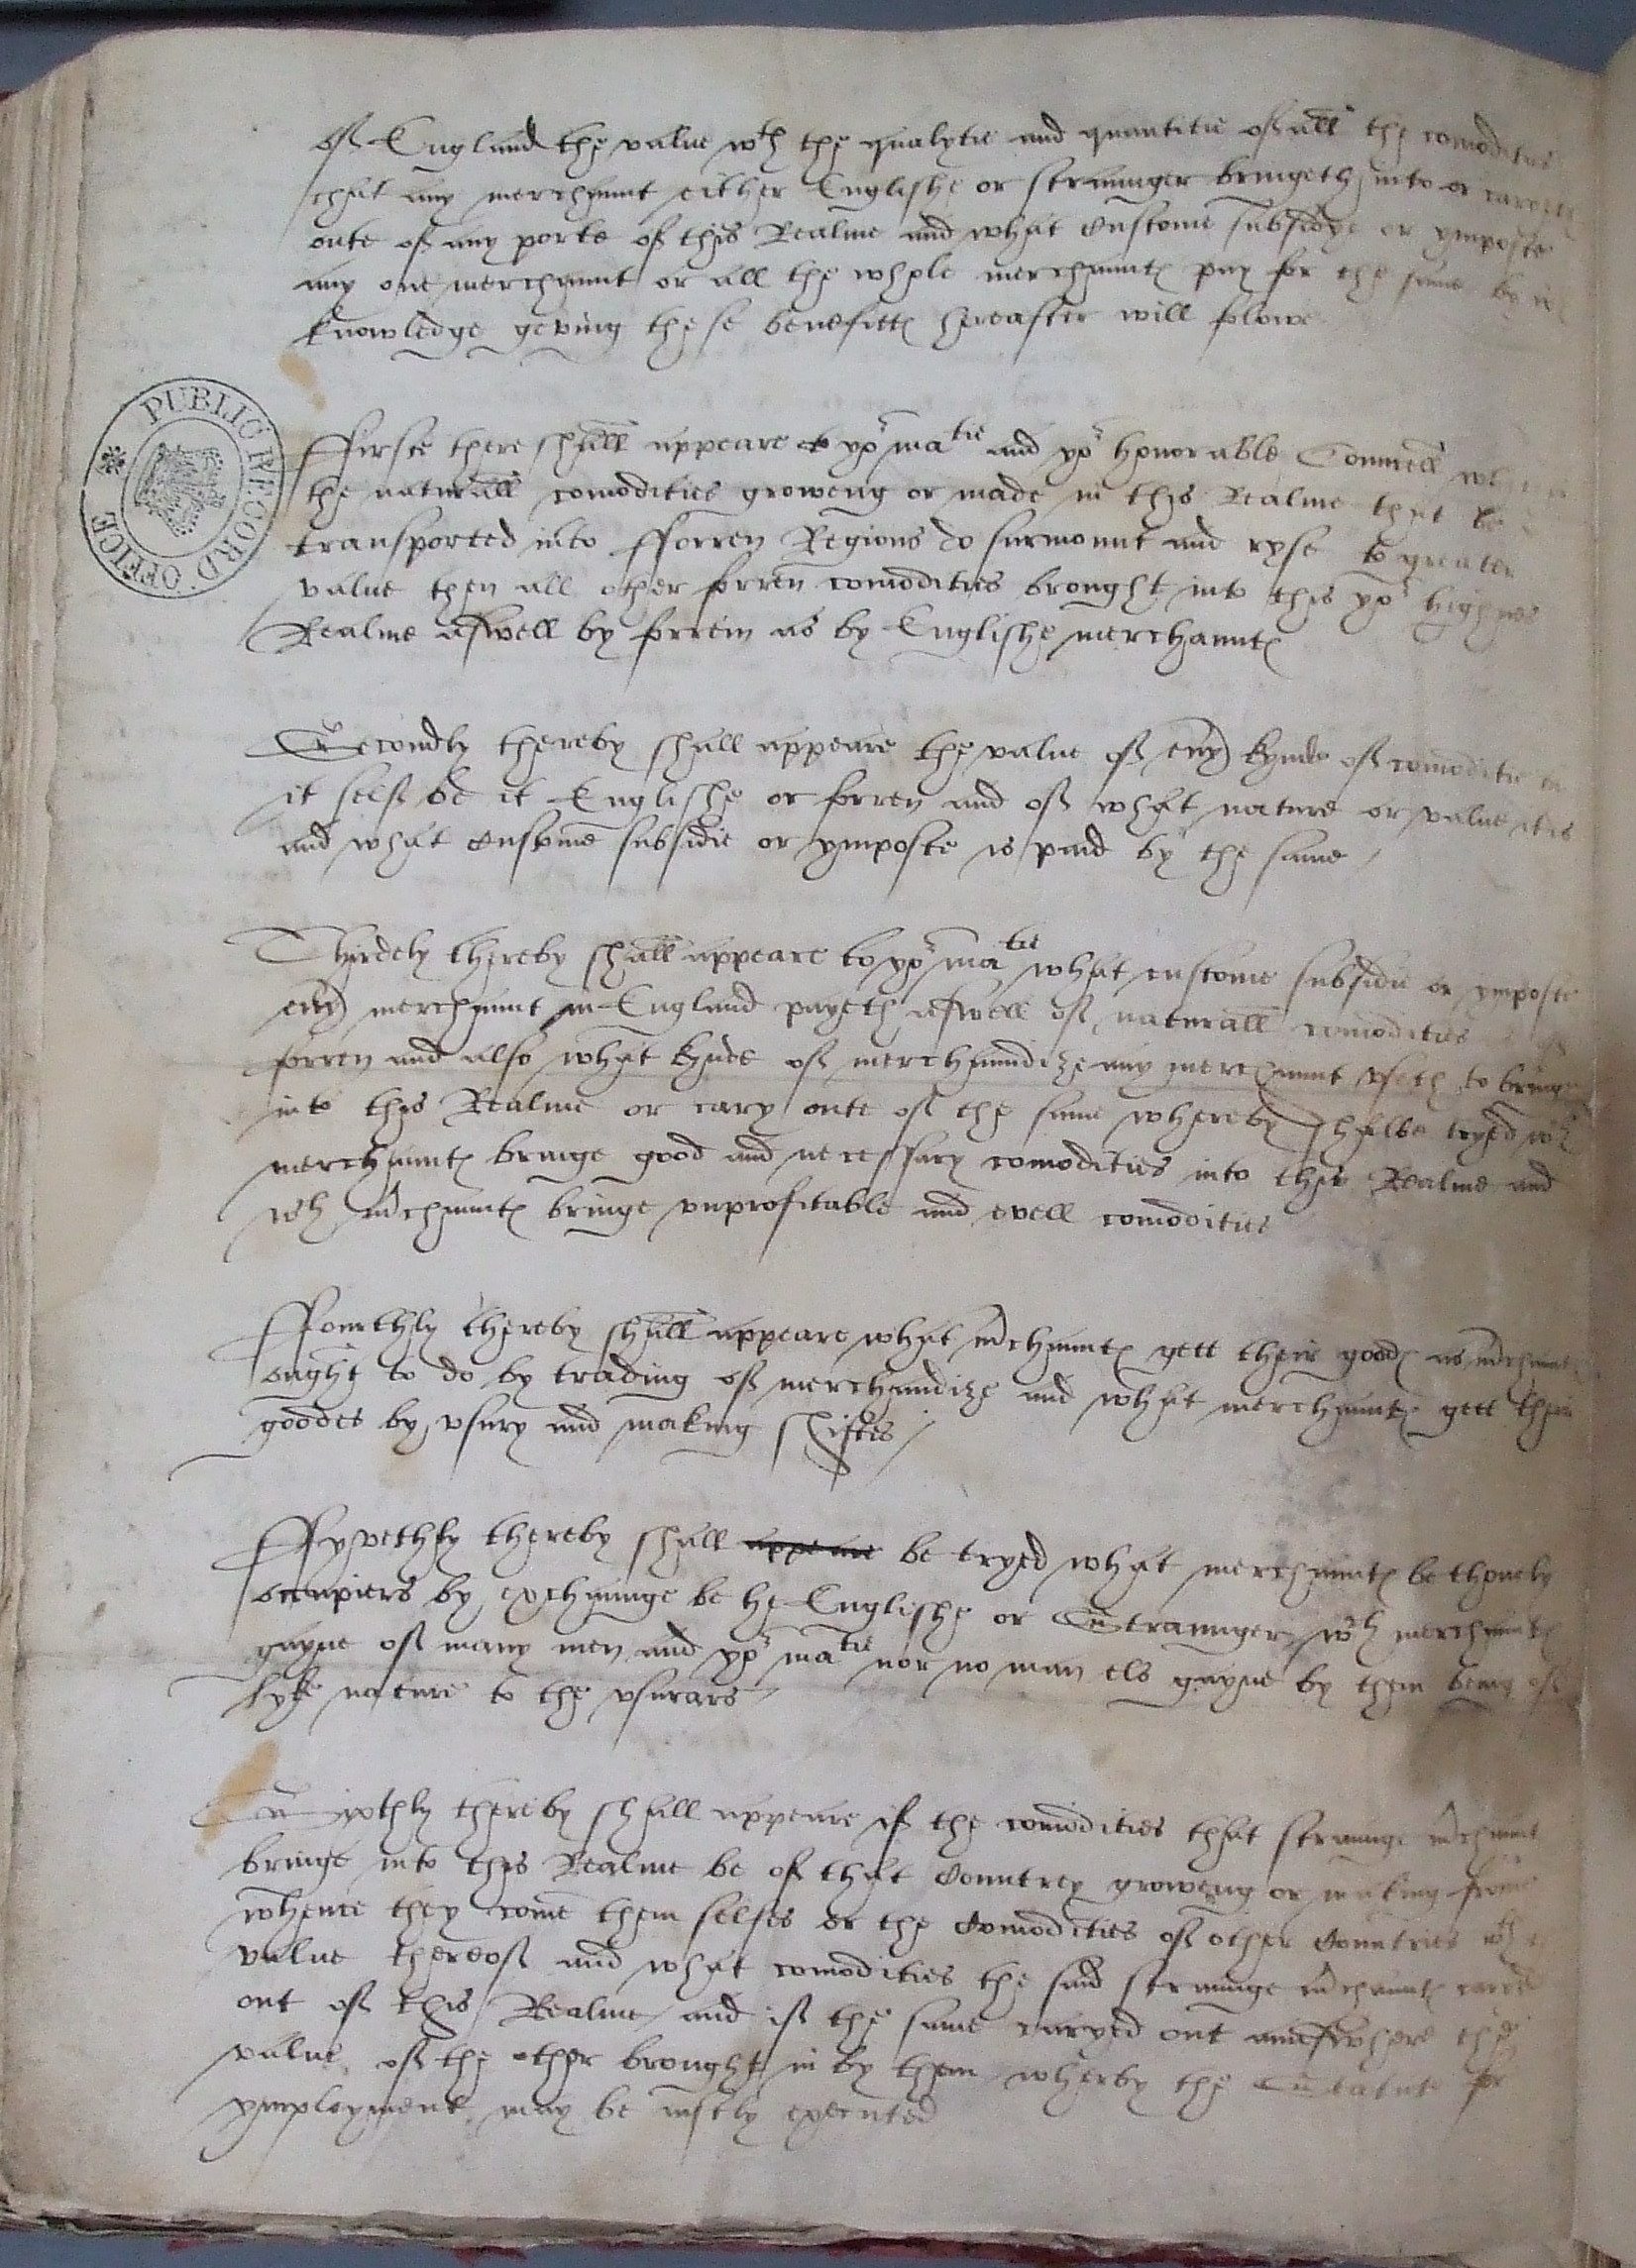 of England the value wth the qualytie and quantitie of all the comodities
that any merchaunt either Englishe or straunger bringeth into or caryeth
oute of any porte of this Realme and what Custome subsidye or ymposte
any one merchaunt or all the whole merchauntes pay for the same by
knowledge geving these benefittes hereafter will flowe
PUBLIC RECORD OFFICE
Ffirste there shall appeare to yor matie and yor honorable Councell
the naturall comodities groweng or made in this Realme that be
transported into fforren Regions do surmount and ryse to greater
value then all other forren comodities brought into this yor highnes
Realme aswell by forrein as by Englishe merchauntes
Secondly thereby shall appeare the value of euy kynde of comoditie
it self be it Englishe or forren and of what nature or value it is
and what Custome subsidie or ymposte is paid by the same /
Thirdely thereby shall appeare to yor matie what custome subsidie or ymposte
euy merchaunt in England payeth aswell of naturall comodities
forren and also what kynde of merchaundize any merchaunt vseth to bringe
into this Realme or cary oute of the same whereby shalbe tryed wch
merchauntes bringe good and necessary comodities into this Realme and
wch mchauntes bringe vnprofitable and evell comodities
Ffourthly thereby shall appeare what mchauntes gett their goodes as mchauntes
ought to do by trading of merchandize and what merchauntes gett their
goodes by vsury and making shiftes /
Ffyvethly thereby shall appeare be tryed what merchauntes be thonely
occupiers by exchaunge be he Englishe or Straunger wch merchauntes
gayne of many men and yor matie nor no man els gayne by them being of
lyke nature to the vsurars /
Sixthly thereby shall appeare if the comodities that straunge mchaunt
bringe into this Realme be of that Countrey groweng or making frome
whence they come them selfes or the Comodities of other Countries wth
value thereof and what comodities the said straunge mchauntes
out of this Realme and if the same caryed out the
value of the other brought in by them wherby the Statute for
ymployment may be iustly executed